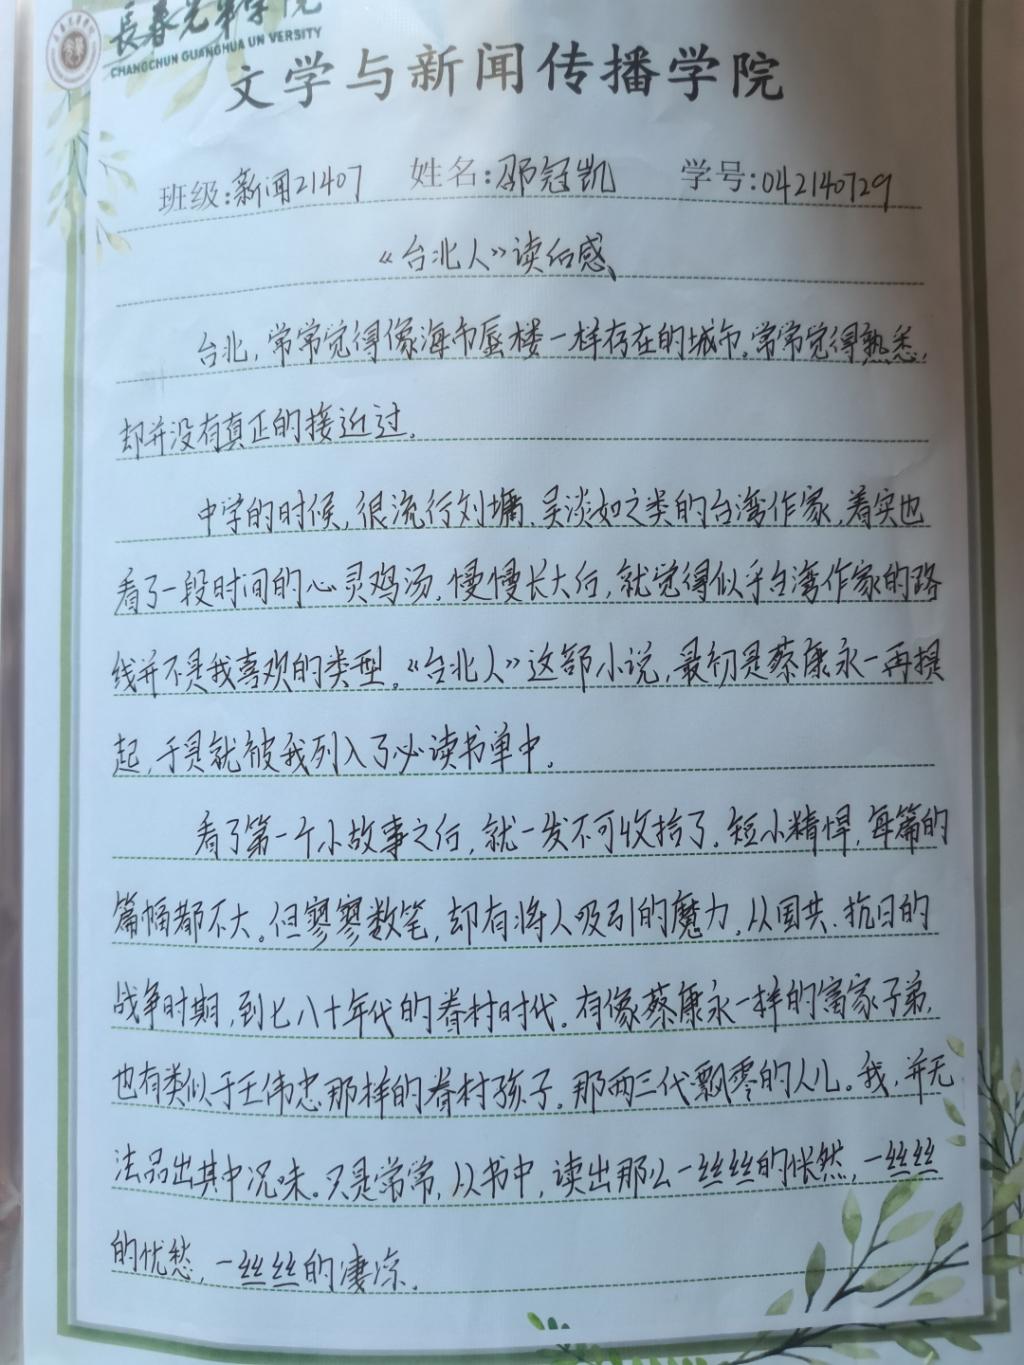 長春光華学院
CHANGCHUN GUANGHUA UN VERSITY
文学与新闻传播学院
班级:新闻21407 姓名:邵冠凯 学号:042140729
《台北人》读后感
台北,常常觉得像海市蜃楼一样存在的城市。常常觉得熟悉,
却并没有真正的接近过。
中学的时候,很流行刘墉、吴淡如之类的台湾作家,着实也
看了一段时间的心灵鸡汤,慢慢长大后,就觉得似乎台湾作家的路
线并不是我喜欢的类型。《台北人》这部小说,最初是蔡康永一再提
起,于是就被我列入了必读书单中。
看了第一个小故事之后,就一发不可收拾了。短小精悍,每篇的
篇幅都不大。但寥寥数笔,却有将人吸引的魔力。从国共、抗日的
战争时期,到七八十年代的眷村时代。有像蔡康永一样的富家子弟,
也有类似于王伟忠那样的眷村孩子。那两三代飘零的人儿。我,并无
法品出其中况味。只是常常,从书中,读出那么一丝丝的怅然,一丝丝
的忧愁,一丝丝的凄凉。